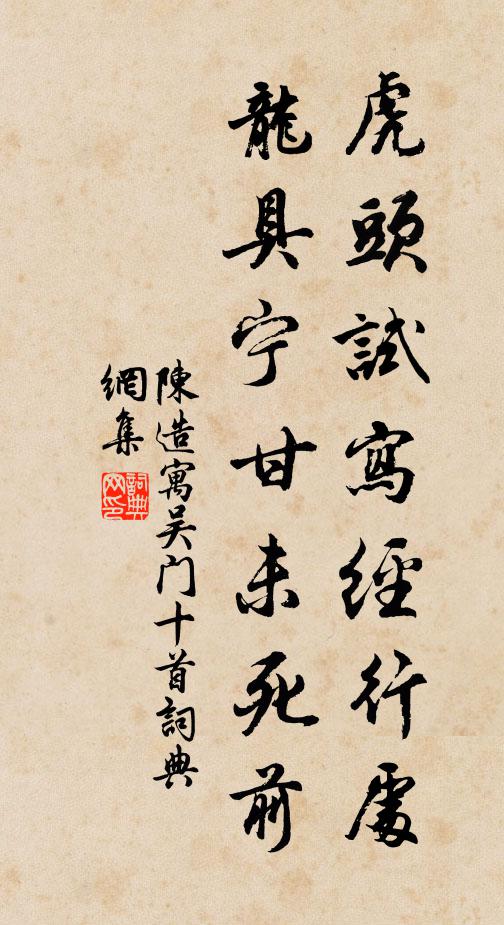 虎頭試寫經行處
龍具宁甘未死前
陳造寓吴门十首詞典
網集
詞典網印